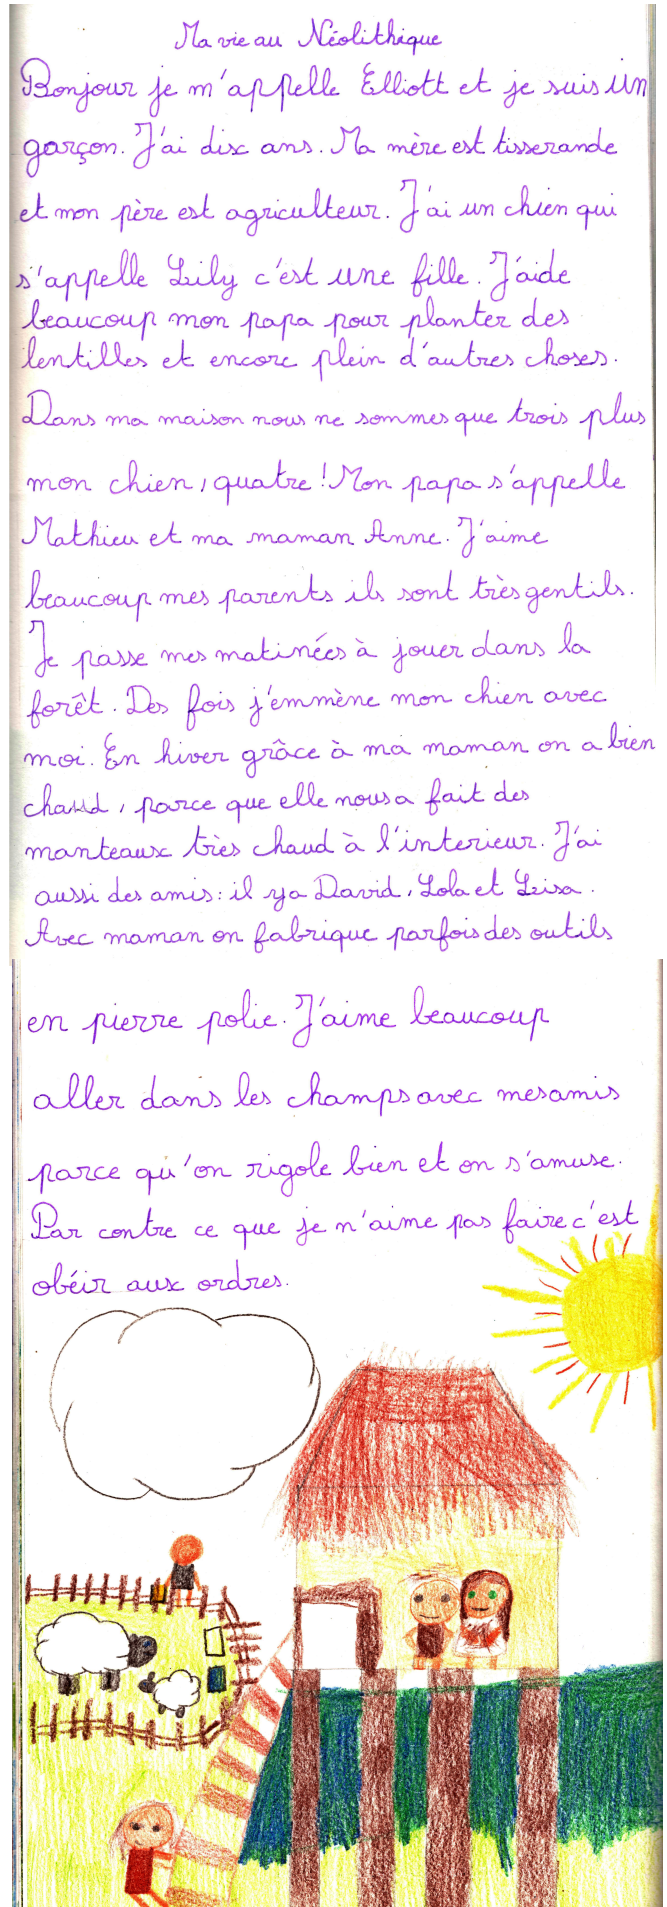 Ma vie au Néolithique
Bonjour je m'appelle Elliott et je suis un
garçon. J'ai dix ans. Ma mère est tisserande
et mon père est agriculteur. J'ai un chien qui
s'appelle Lily c'est une fille. J'aide
beaucoup mon papa pour planter des
lentilles et encore plein d'autres choses.
Dans ma maison nous ne sommes que trois plus
mon chien, quatre ! Mon papa s'appelle
Mathieu et ma maman Anne. J'aime
beaucoup mes parents ils sont très gentils.
Je passe mes matinées à jouer dans la
forêt. Des fois j'emmène mon chien avec
moi. En hiver grâce à ma maman on a bien
chaud, parce que elle nous a fait des
manteaux très chaud à l'interieur. J'ai
aussi des amis : il ya David, Lola et Leisa.
Avec maman on fabrique parfois des outils
en pierre polie. J'aime beaucoup
aller dans les champs avec mes amis
parce qu'on rigole bien et on s'amuse.
Par contre ce que je n'aime pas faire c'est
obéir aux ordres.